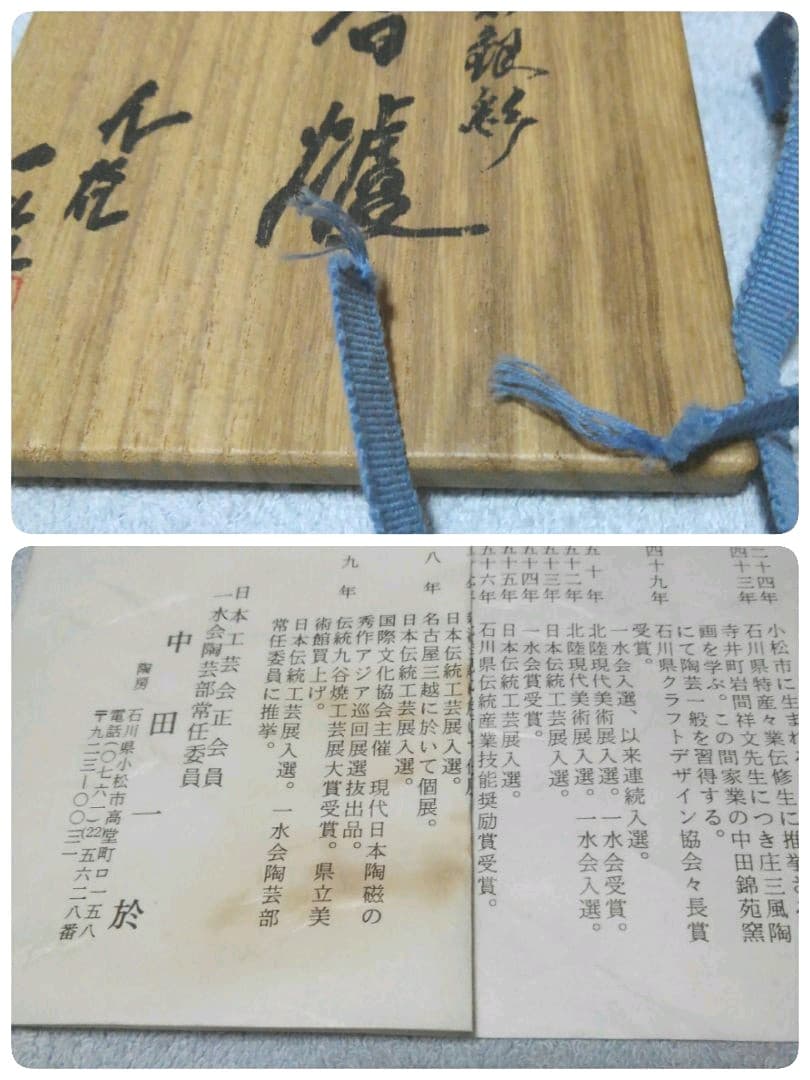 銀彩
香
爐
九谷
一
二十四年
小松市に生まれ
四十三年
石川県特産々業伝修生に推挙さ
寺井町岩間祥文先生につき庄三風陶
画を学ぶ。この間家業の中田錦苑窯
にて陶芸一般を習得する。
四十九年
石川県クラフトデザイン協会々長賞
受賞。
一水会入選、以来連続入選。
五十年
北陸現代美術展入選。一水会受賞。
五十二年
北陸現代美術展入選。一水会入選。
五十三年
日本伝統工芸展入選。
五十四年
一水会賞受賞。
五十五年
日本伝統工芸展入選。
五十六年
石川県伝統産業技能奨励賞受賞。
日本伝統工芸展入選。
八年
名古屋三越に於いて個展。
日本伝統工芸展入選。
国際文化協会主催 現代日本陶磁の
秀作アジア巡回展選抜出品。
九年
伝統九谷焼工芸展大賞受賞。県立美
術館買上げ。
日本伝統工芸展入選。一水会陶芸部
常任委員に推挙。
日本工芸会正会員
一水会陶芸部常任委員
中田一於
陶房 石川県小松市高堂町ロ一五八
電話(〇七六一)(22)五六二八番
〒九二三―〇〇三一